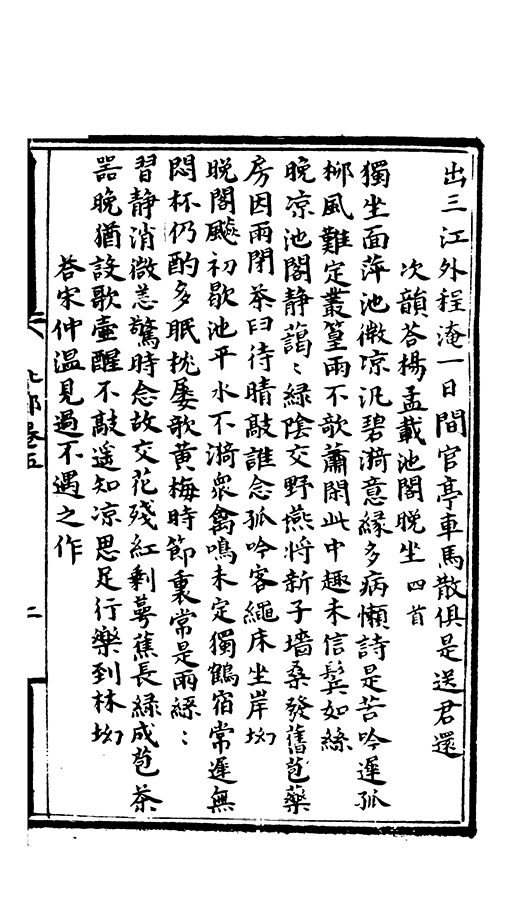 出三江外程淹一日間官亭車馬散俱是送君還
次韻荅楊孟載池閣晚坐 四首
獨坐面萍池微凉汎碧漪意緣多病懶詩是苦吟遲孤
柳風難定叢篁雨不歌蕭閑此中趣未信鬂如絲
晚凉池閣靜藹〻綠陰交野燕將新子墻桑發舊苞藥
房因雨閉茶臼待晴敲誰念孤吟客繩床坐岸坳
晚閣颸初歇池平水不漪衆禽鳴未定獨鶴宿常遲無
悶杯仍酌多眠枕屡欹黄梅時節裏常是雨絲〻
習靜消微恙驚時念故交花殘紅剩萼蕉長綠成苞茶
噐晚猶設歌壷醒不敲遥知凉思足行樂到林坳
荅宋仲溫見過不遇之作
北郭卷五
二